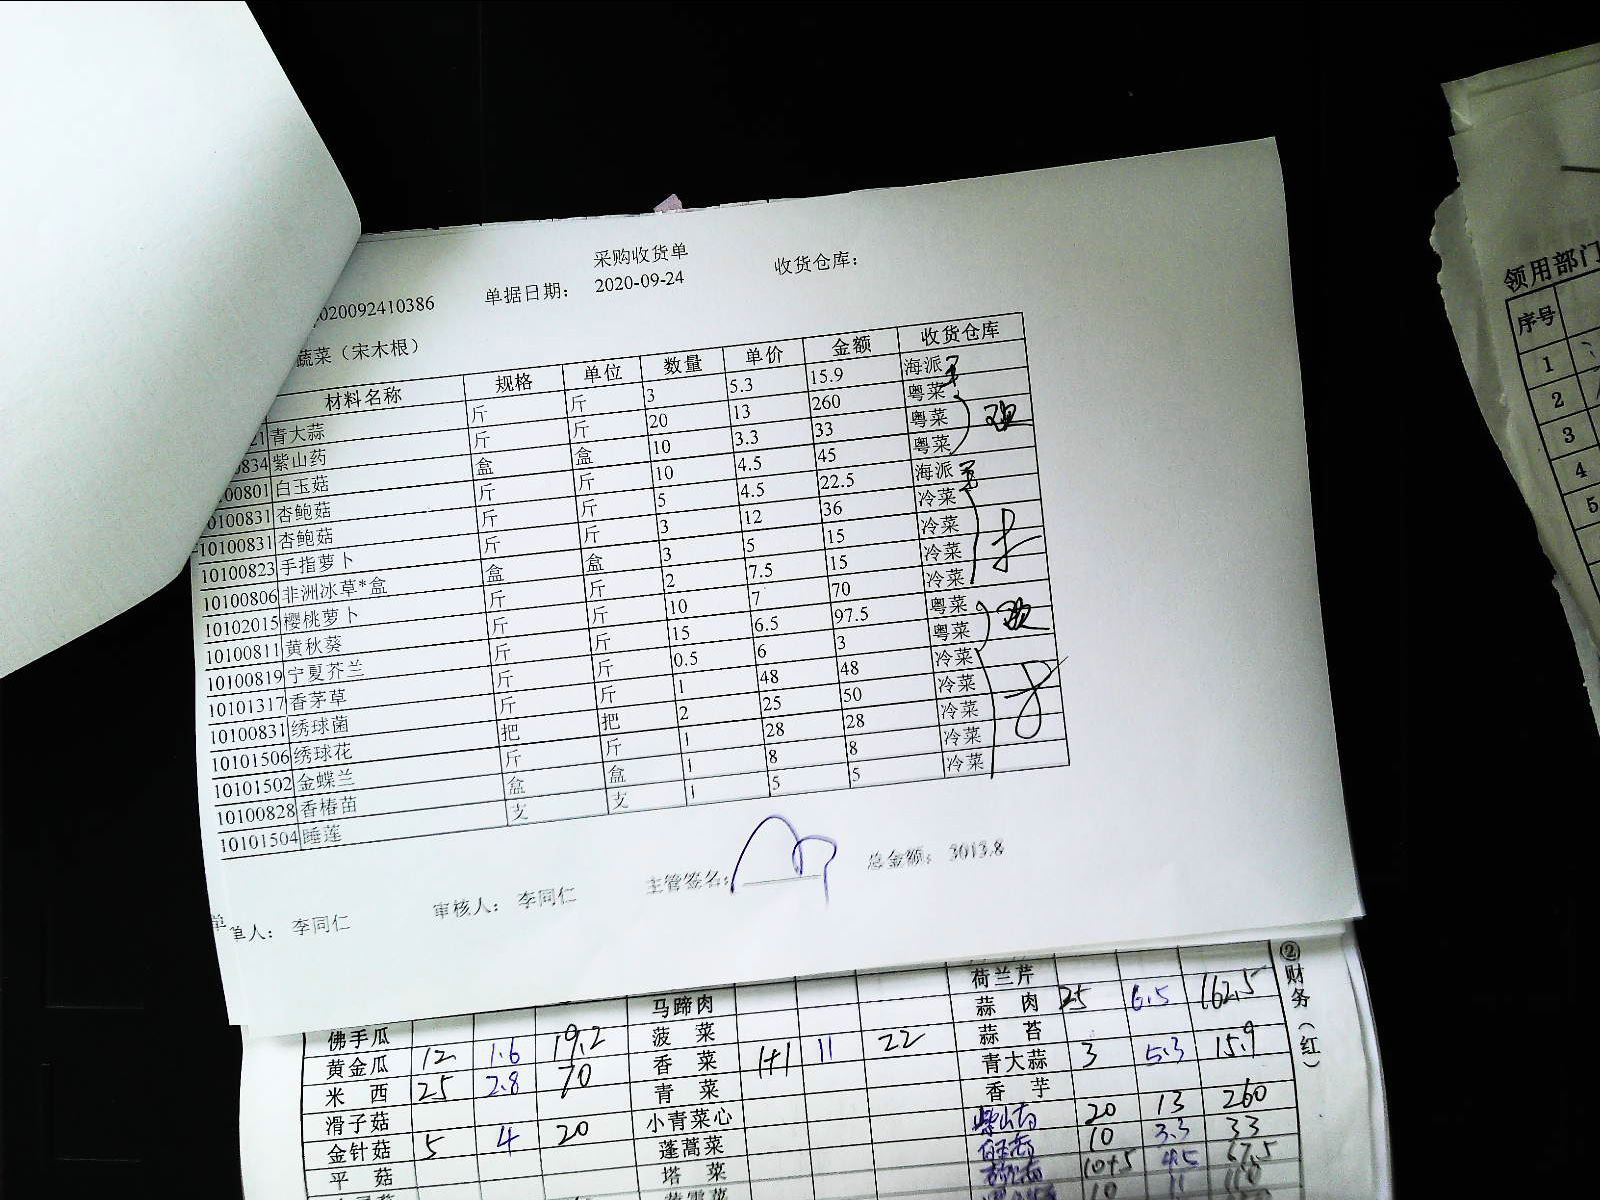 采购收货单
020092410386 单据日期： 2020-09-24 收货仓库：
蔬菜（宋木根）
材料名称 规格 单位 数量 单价 金额 收货仓库
21 青大蒜 斤 斤 3 5.3 15.9 海派
0834 紫山药 斤 斤 20 13 260 粤菜
00801 白玉菇 盒 盒 10 3.3 33 粤菜
0100831 杏鲍菇 斤 斤 10 4.5 45 粤菜
10100831 杏鲍菇 斤 斤 5 4.5 22.5 海派
10100823 手指萝卜 斤 斤 3 12 36 冷菜
10100806 非洲冰草*盒 盒 盒 3 5 15 冷菜
10102015 樱桃萝卜 斤 斤 2 7.5 15 冷菜
10100811 黄秋葵 斤 斤 10 7 70 冷菜
10100819 宁夏芥兰 斤 斤 15 6.5 97.5 粤菜
10101317 香茅草 斤 斤 0.5 6 3 粤菜
10100831 绣球菌 斤 斤 1 48 48 冷菜
10101506 绣球花 把 把 2 25 50 冷菜
10101502 金蝶兰 斤 斤 1 28 28 冷菜
10100828 香椿苗 盒 盒 1 8 8 冷菜
10101504 睡莲 支 支 1 5 5 冷菜
单人： 李同仁 审核人： 李同仁 主管签名: 总金额： 3013.8
荷兰芹
马蹄肉 蒜肉 25 6.5 162.5
佛手瓜 12 1.6 19.2 菠菜 蒜苔
黄金瓜 香菜 1+1 11 22 青大蒜 3 5.3 15.9
米西 25 2.8 70 青菜 香芋
滑子菇 小青菜心 紫山药 20 13 260
金针菇 5 4 20 蓬蒿菜 白玉菇 10 3.3 33
平菇 塔菜 10+5 4.5 67.5
②财务（红）
领用部门
序号
1
2
3
4
5